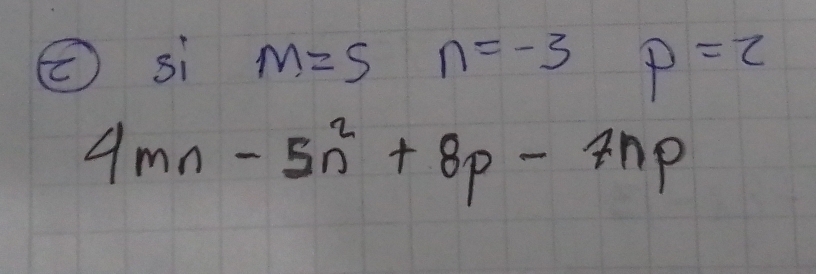 ② si m=5 n=-3 p=2
4mn - 5n² + 8p - 7np